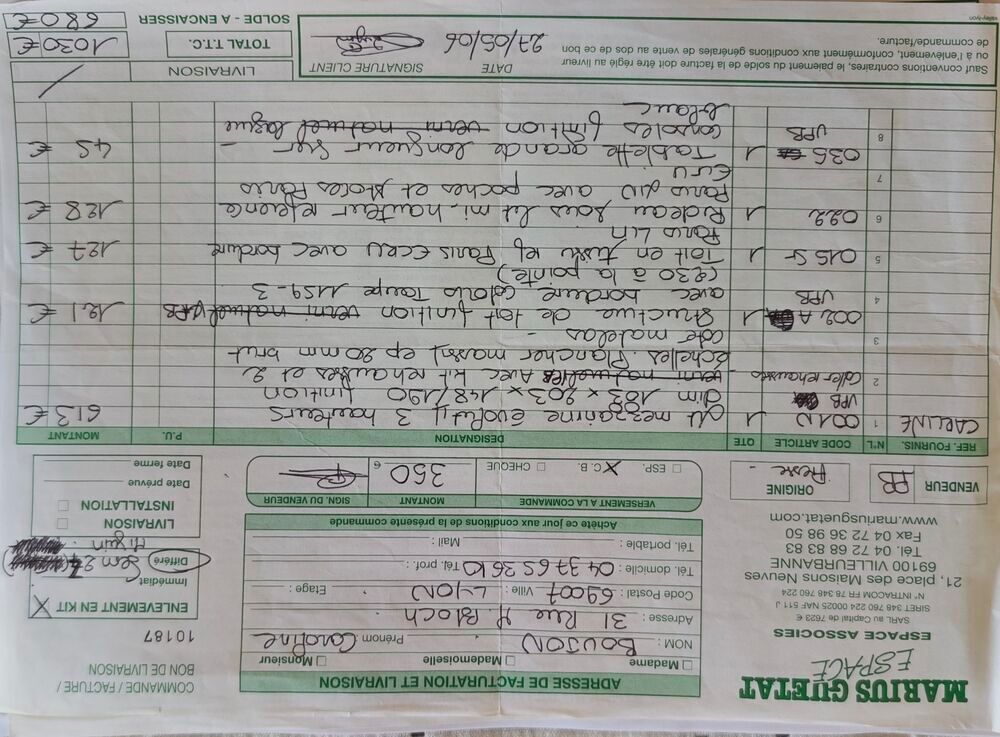 MARIUS GUETAT
ESPACE
ESPACE ASSOCIES
SARL au Capital de 7623 €
SIRET 348 760 224 00025 NAF 511 J
N° INTRACOM FR 78 348 760 224
21, place des Maisons Neuves
69100 VILLEURBANNE
Tél. 04 72 68 83 83
Fax 04 72 36 98 50
www.mariusguetat.com
VENDEUR PB
ORIGINE Presse
ADRESSE DE FACTURATION ET LIVRAISON
Madame Mademoiselle Monsieur
NOM : BOUJON Prénom : Caroline
Adresse : 31 Rue M. BLOCH
Code Postal : 69007 Ville : LYON Etage :
Tél. domicile : 04 37 65 36 10 Tél. prof. :
Tél. portable : Mail :
Achète ce jour aux conditions de la présente commande
VERSEMENT A LA COMMANDE MONTANT SIGN. DU VENDEUR
ESP. X C.B. CHEQUE 350 €
COMMANDE / FACTURE /
BON DE LIVRAISON
10187
ENLEVEMENT EN KIT X
Immédiat
Différé Sem 24
Mi juin
LIVRAISON
INSTALLATION
Date prévue
Date ferme
REF. FOURNIS. N°L CODE ARTICLE QTE DESIGNATION P.U. MONTANT
CALLINE 1 001W 1 Lit mezzanine évolutif 3 hauteurs 613 €
VPB dim 183 x 203 x 148/190 finition
2 Coller rehausses verni naturel VPB Avec kit rehausses et 2
échelles. Plancher massif ep 20 mm brut
3 côté matelas
002 A 1 Structure de toit finition verni naturel VPB 121 €
4 VPB avec bordure coloris Taupe 1159-3
(230 à la pointe)
5 015 Sr 1 Toit en tissu ref PARIS ECRU avec bordure 127 €
Paris LIN
6 022 1 Rideau sous lit mi-hauteur référence 128 €
Paris LIN avec poches et étoiles Paris
7 Ecru
035 1 Tablette grande longueur 45 €
8 VPB consoles finition verni naturel laquée
blanc
Sauf conventions contraires, le paiement du solde de la facture doit être réglé au livreur
ou à l'enlèvement, conformément aux conditions générales de vente au dos de ce bon
de commande/facture.
DATE SIGNATURE CLIENT
27/05/06
LIVRAISON /
TOTAL T.T.C. 1030 €
SOLDE - A ENCAISSER 680 €